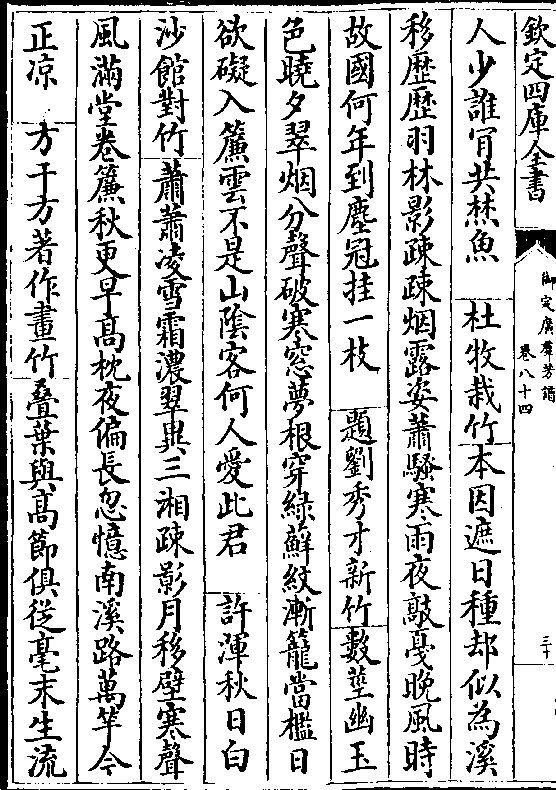 欽定四庫全書
御定廣羣芳譜
卷八十四
三十
人少誰肯共焚魚　杜牧栽竹本因遮日種却似為溪
移歴歴羽林影疎疎烟露姿蕭騷寒雨夜敲戞晚風時
故國何年到塵冠挂一枝　題劉秀才新竹數莖幽玉
色曉夕翠烟分聲破寒窓夢根穿緑蘚紋漸籠當檻日
欲礙入簾雲不是山陰客何人愛此君　許渾秋日白
沙館對竹蕭蕭凌雪霜濃翠異三湘疎影月移壁寒聲
風滿堂卷簾秋更早髙枕夜偏長忽憶南溪路萬竿今
正凉　方干方著作畫竹叠葉與髙節俱從毫末生流